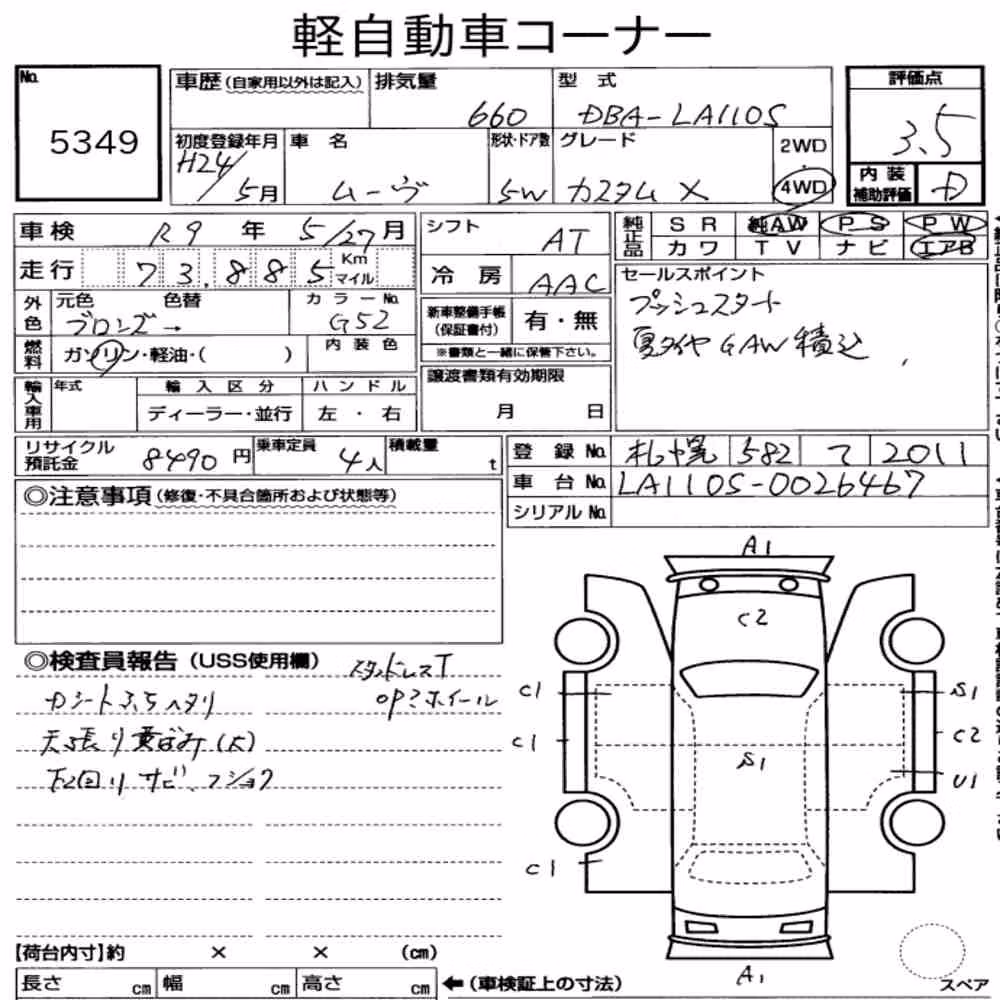 軽自動車コーナー
No. 5349
車歴(自家用以外は記入) 排気量 660 型式 DBA-LA110S
初度登録年月 H24/5月 車名 ムーヴ 形状・ドア数 5W グレード カスタム X 2WD 4WD
評価点 3.5
内装補助評価 D
車検 R9年 5/27月
走行 73,885 Km マイル
外色 元色 ブロンズ→ 色替 カラーNo. G52
燃料 ガソリン・軽油・( ) 内装色
輸入車用 年式 輸入区分 ディーラー・並行 ハンドル 左・右
シフト AT
冷房 AAC
新車整備手帳(保証書付) 有・無
※書類と一緒に保管下さい。
譲渡書類有効期限 月 日
純正品 SR 純AW PS PW
カワ TV ナビ エアB
セールスポイント
プッシュスタート
夏タイヤGAW積込
リサイクル預託金 8490円 乗車定員 4人 積載量 t
登録No. 札幌 582 て 2011
車台No. LA110S-0026467
シリアルNo.
◎注意事項(修復・不具合箇所および状態等)
◎検査員報告(USS使用欄)
スタッドレスT
Dシートよごれヘタリ OPアホイール
天張り黄ばみ(大)
下回りサビ、フショク
A1
C2
C1 S1
C1 C2
S1
U1
C1
A1
スペア
【荷台内寸】約 × × (cm)
長さ cm 幅 cm 高さ cm ←(車検証上の寸法)